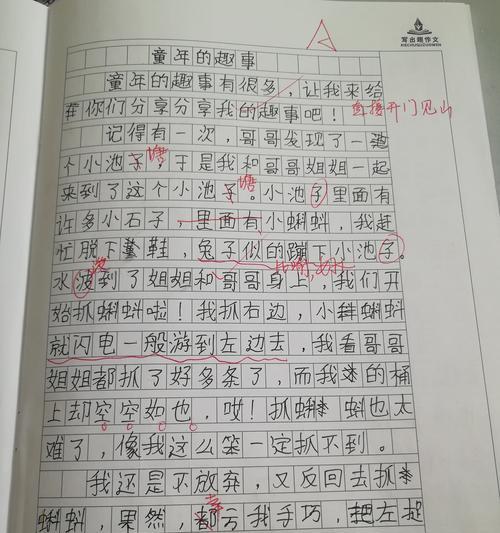 写出题作文
XIECHUQUZUOWEN
A
童年的趣事
童年的趣事有很多，让我来给
你们分享分享我的趣事吧！
直接开门见山
记得有一次，哥哥发现了一
个小池子，于是我和哥哥姐姐一起
塘
来到了这个小池子。小池子里面有
塘
许多小石子，里面有小蝌蚪，我赶
忙脱下鞋，兔子似的蹦下小池子。
水波到了姐姐和哥哥身上，我们开
始抓蝌蚪啦！我抓右边，小蝌蚪
就闪电一般游到左边去，我看哥哥
姐姐都抓了好多条了，而我的桶
上却空空如也，哎！抓蝌蚪也太
难了，像我这么笨一定抓不到。
我还是不放弃，又反回去抓
蝌蚪，果然，都云我手巧，把左捉